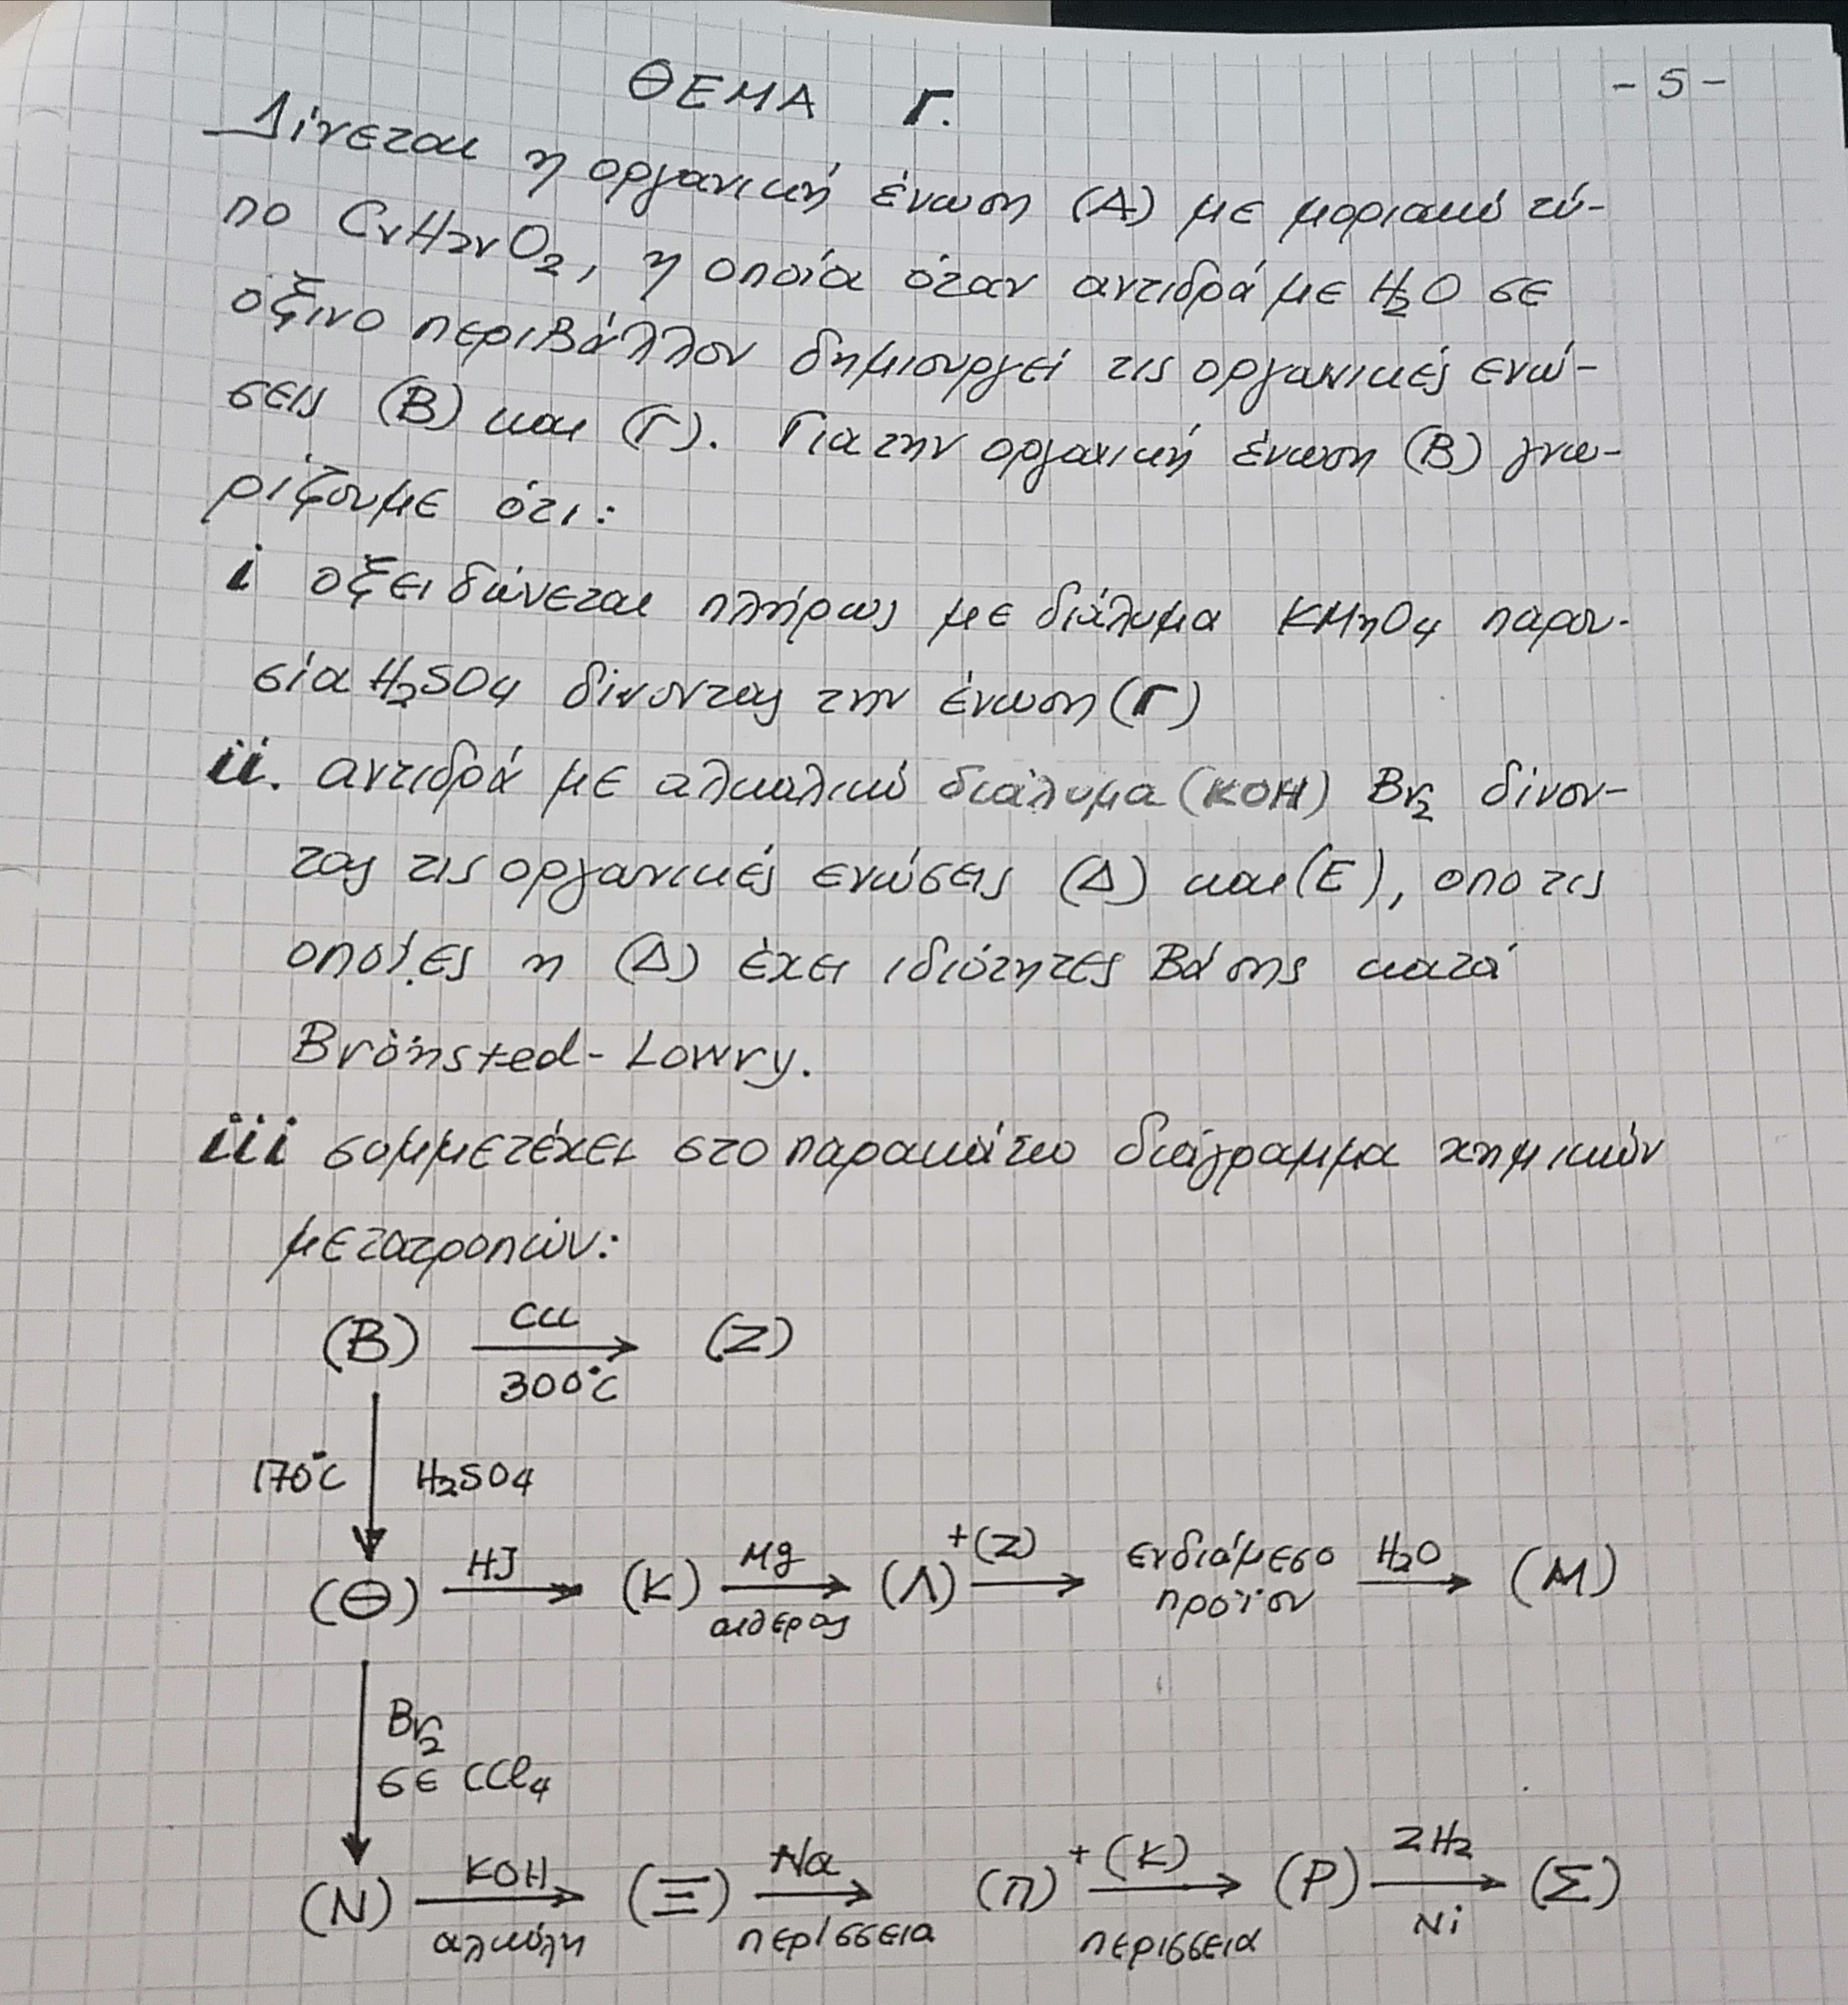 - 5 -
ΘΕΜΑ Γ.
Δίνεται η οργανική ένωση (Α) με μοριακό τύ-
πο CνH2νO2, η οποία όταν αντιδρά με H2O σε
όξινο περιβάλλον δημιουργεί τις οργανικές ενώ-
σεις (Β) και (Γ). Για την οργανική ένωση (Β) γνω-
ρίζουμε ότι:
i οξειδώνεται πλήρως με διάλυμα KMnO4 παρου-
σία H2SO4 δίνοντας την ένωση (Γ)
ii. αντιδρά με αλκαλικό διάλυμα (KOH) Br2 δίνον-
τας τις οργανικές ενώσεις (Δ) και (Ε), απο τις
οποίες η (Δ) έχει ιδιότητες βάσης κατά
Brönsted - Lowry.
iii συμμετέχει στο παρακάτω διάγραμμα χημικών
μετατροπών:
(Β) Cu 300°C (Ζ)
170°C H2SO4
(Θ) HJ (Κ) Mg αιθέρας (Λ) +(Ζ) ενδιάμεσο προϊόν H2O (Μ)
Br2
σε CCl4
(Ν) KOH αλκόλη (Ξ) Na περίσσεια (Π) +(Κ) περίσσεια (Ρ) 2H2 Ni (Σ)